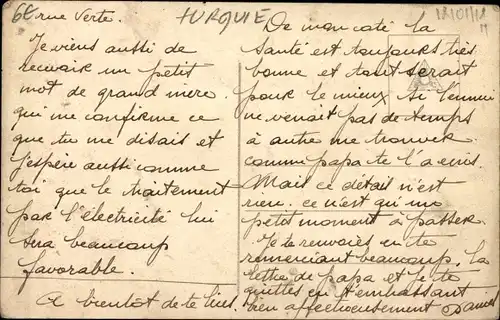 6E rue Verte.
TURQUIE
Je viens aussi de
recevoir un petit
mot de grand mère
qui me confirme ce
que tu me disais et
j'espère aussi comme
toi que le traitement
par l'électricité lui
sera beaucoup
favorable.
A bientôt de te lire.
De mon coté la
santé est toujours très
bonne et tout serait
pour le mieux si l'ennui
ne venait pas de temps
à autre me trouver
comme papa te l'a écris.
Mais ce détail n'est
rien. ce n'est qu'un
petit moment à passer.
Je te renvoies en te
remerciant beaucoup, la
lettre de papa et je te
quittes en t'embrassant
bien affectueusement Daniel